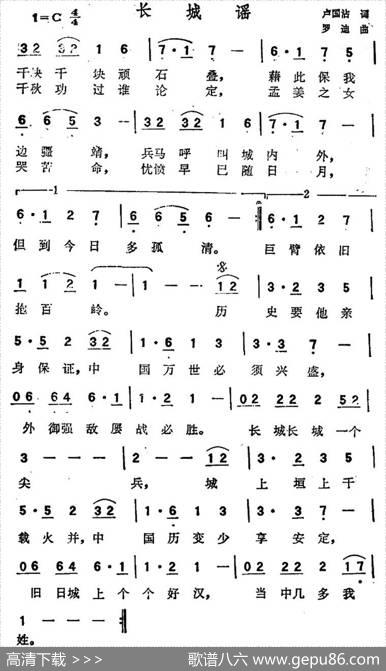 长城谣
1=C 4/4
卢国沾 词
罗迪 曲
3 2 3 2 1 6 | 7·1 7 — | 6 7 8 6
千块千块顽石叠，藉此保我
千秋功过谁论定，孟姜之女
6 6 5 3 — | 3 2 3 2 1 6 | 7·1 7 —
边疆靖，兵马呼叫城内外，
哭苦命，忧愤早已随日月，
1 2
6·1 2 7 | 6 6 5 6 — 6·1 2 7
但到今日多孤清。巨臂依旧
1 1 2 1 — | 1 — — 1 2 | 3·2 3 5
抱百龄。历史要他亲
5·5 2 3 2 | 1·6 1 3 | 3·3 7 —
身保证，中国万世必须兴盛，
0 6 6 4 6·1 | 1·2 1 — | 0 2 2 2 2 5 2
外御强敌屡战必胜。长城长城一个
3 — — — | 2 — — 1 2 | 3·2 3 5
尖兵，城上垣上千
5·5 2 3 2 | 1·6 1 3 | 3·3 7 —
载火并，中国历变少享安定，
0 6 6 4 6·1 | 1·2 1 — | 0 2 2 2 2 1 7
旧日城上个个好汉，当中几多我
1 — — —
姓。
高清下载 >>>
歌谱八六 www.gepu86.com